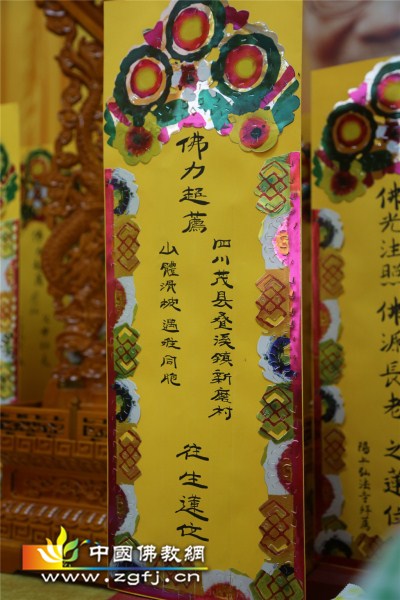 佛力超薦
四川茂縣叠溪鎮新磨村
山體滑坡遇難同胞
往生蓮位
佛光注照
佛源長老
之蓮位
中國佛教網
www.zgfj.cn